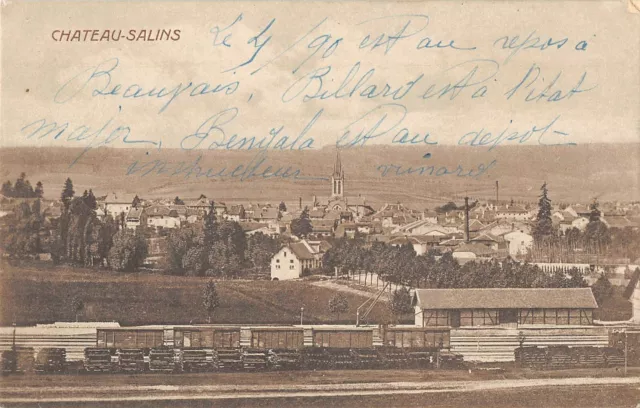 CHATEAU-SALINS
Le 4/90 est au repos à
Beauvais, Billard est à l'état
major, Bendala est au depot
instructeur